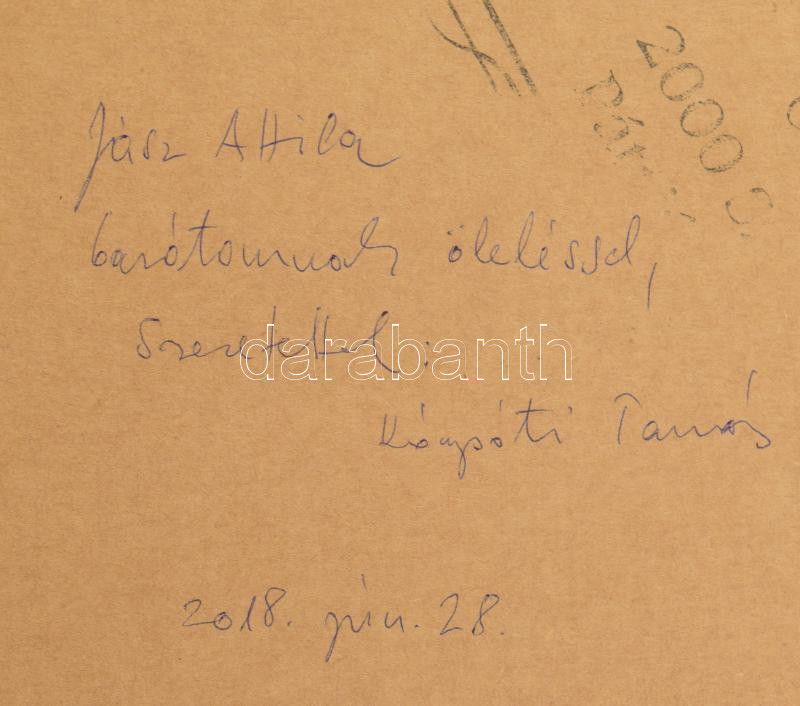 2000 S
Pát
Jász Attila
barátomnak öleléssel,
Szeretettel:
darabanth
Tamás
2018. jún. 28.